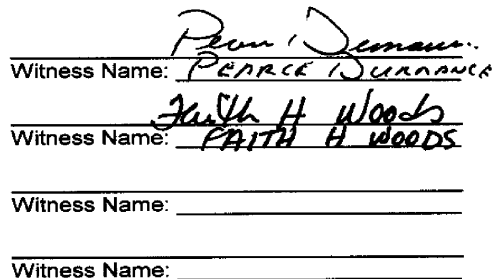 Witness Name: PEARCE DURRANCE
Faith H Woods
Witness Name: FAITH H WOODS
Witness Name:
Witness Name: